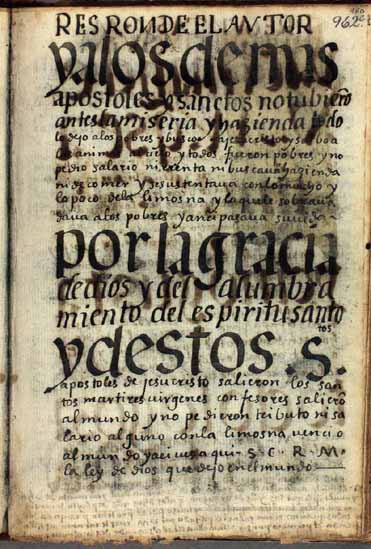 RESPONDE EL AVTOR
962
y a los demas
apostoles y sanctos no tubieró
antes la miseria y hazienda todo
lo dejo a los pobres y busco
y todos fueron pobres y no
pedio salario ni rrenta ni buscaua hazienda
ni de comer y se sustentaua con lo mucho y
lo poco de la limosna y lo que le sobraua
daua a los pobres y anci pasaua su uida
por la gracia
de dios y del alumbra
miento del espiritu santo
y destos . S.tos
apostoles de jesucristo salieron los san
tos martires uirgenes confesores saliero
al mundo y no pedieron tributo ni sa
lario alguno con la limosna uencio
al mundo y aci ues aqui . S . C . R . M .
la ley de dios que dejo en el mundo